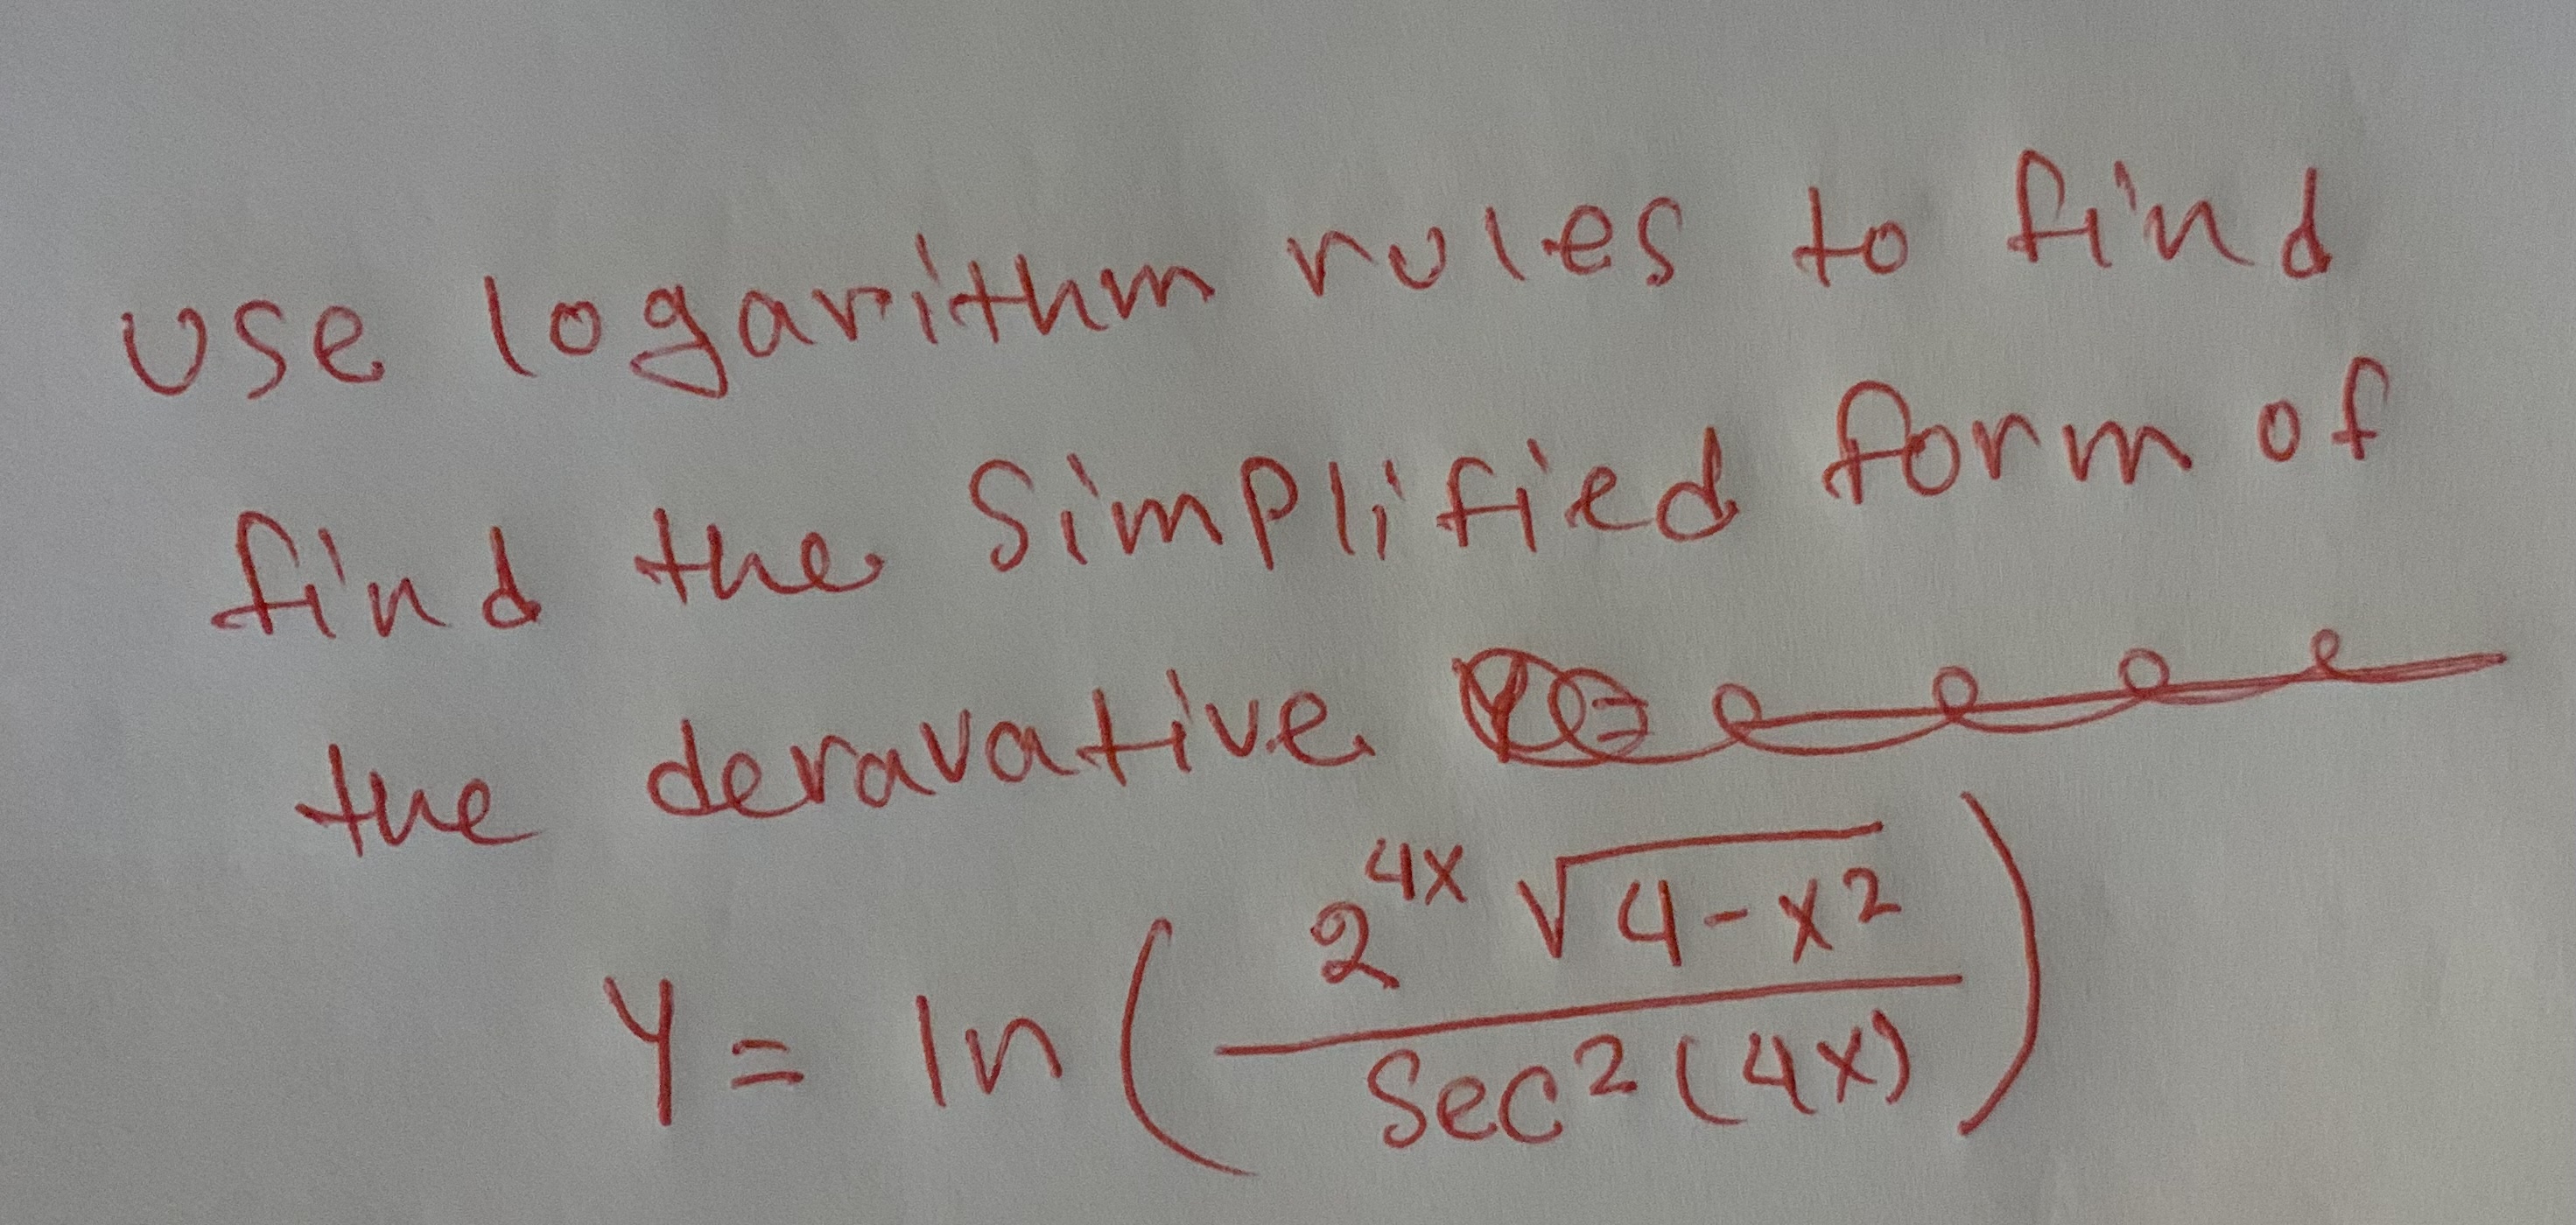 Use logarithm rules to find
find the Simplified form of
the deravative
Y = ln ( 2^4x √4-x² / Sec²(4x) )